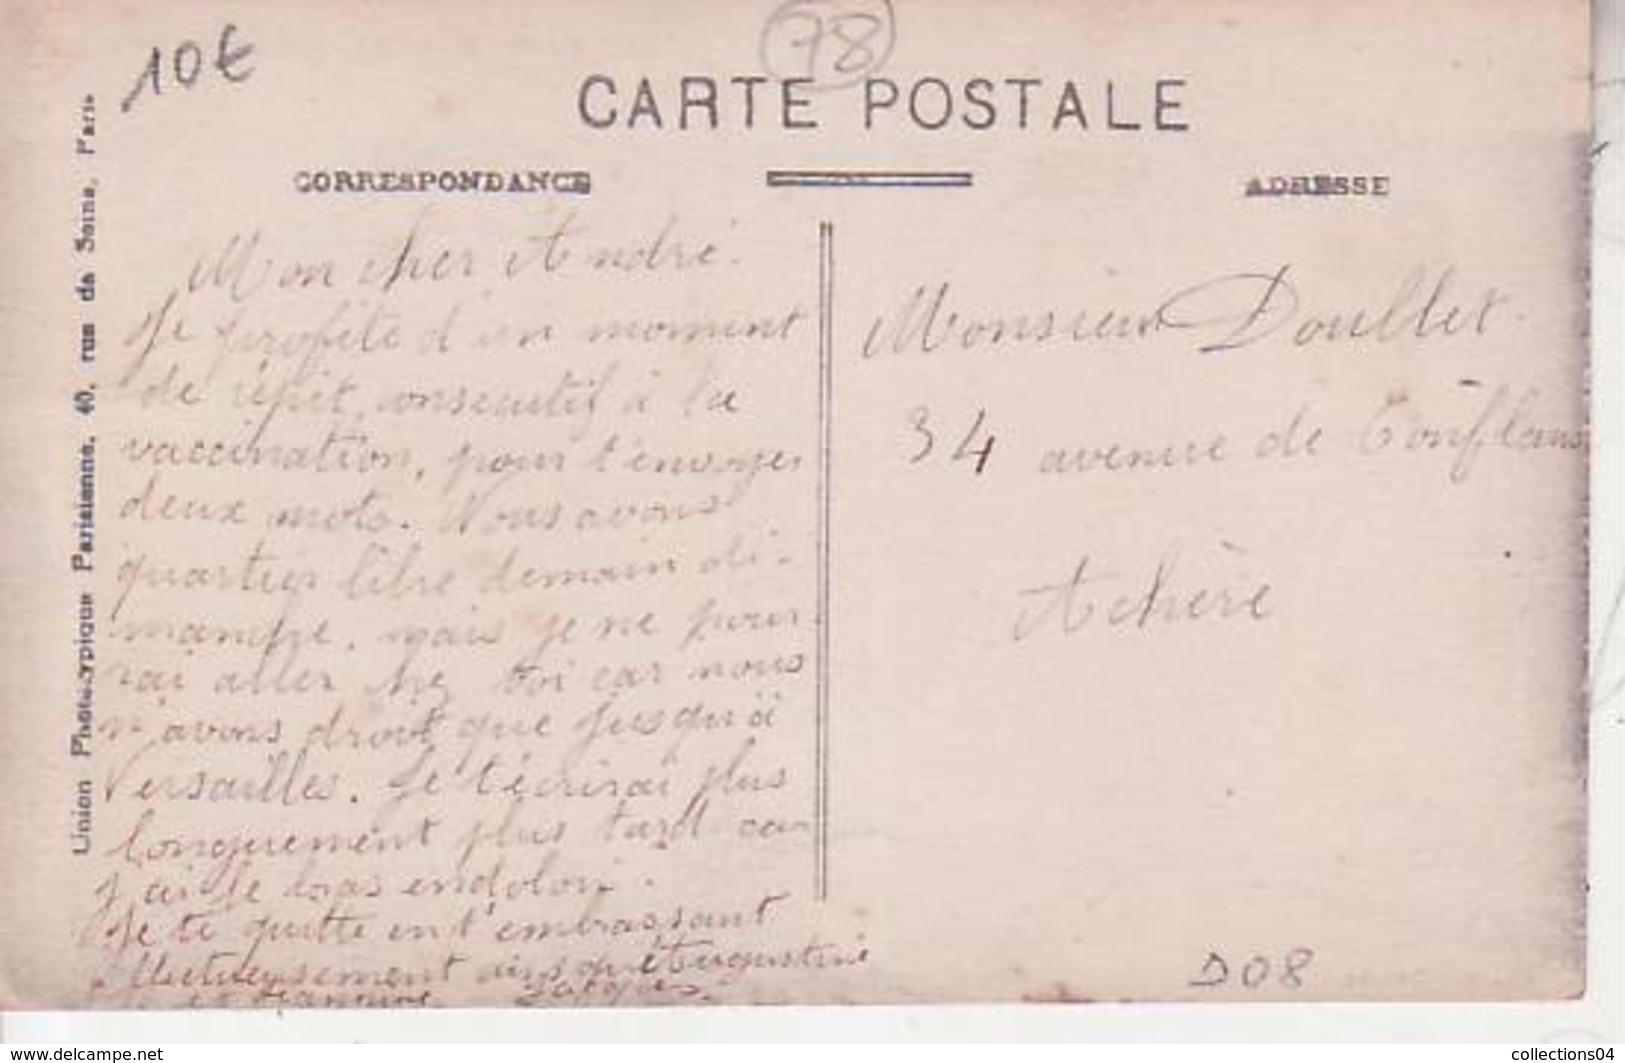 10€
78
CARTE POSTALE
CORRESPONDANCE
ADRESSE
Union Phototypique Parisienne, 40, rue de Seine, Paris
Mon cher André.
Je profite d'un moment
de répit, consécutif à la
vaccination, pour t'envoyer
deux mots. Nous avons
quartier libre demain di-
manche, mais je ne pour-
rai aller chez toi car nous
n'avons droit que jusqu'à
Versailles. Je t'écrirai plus
longuement plus tard car
j'ai le bras endolori.
Je te quitte en t'embrassant
affectueusement ainsi qu'Augustine
et Jeannine Jacques
Monsieur Doullet
34 avenue de Conflans
Achère
D08
www.delcampe.net
collections04